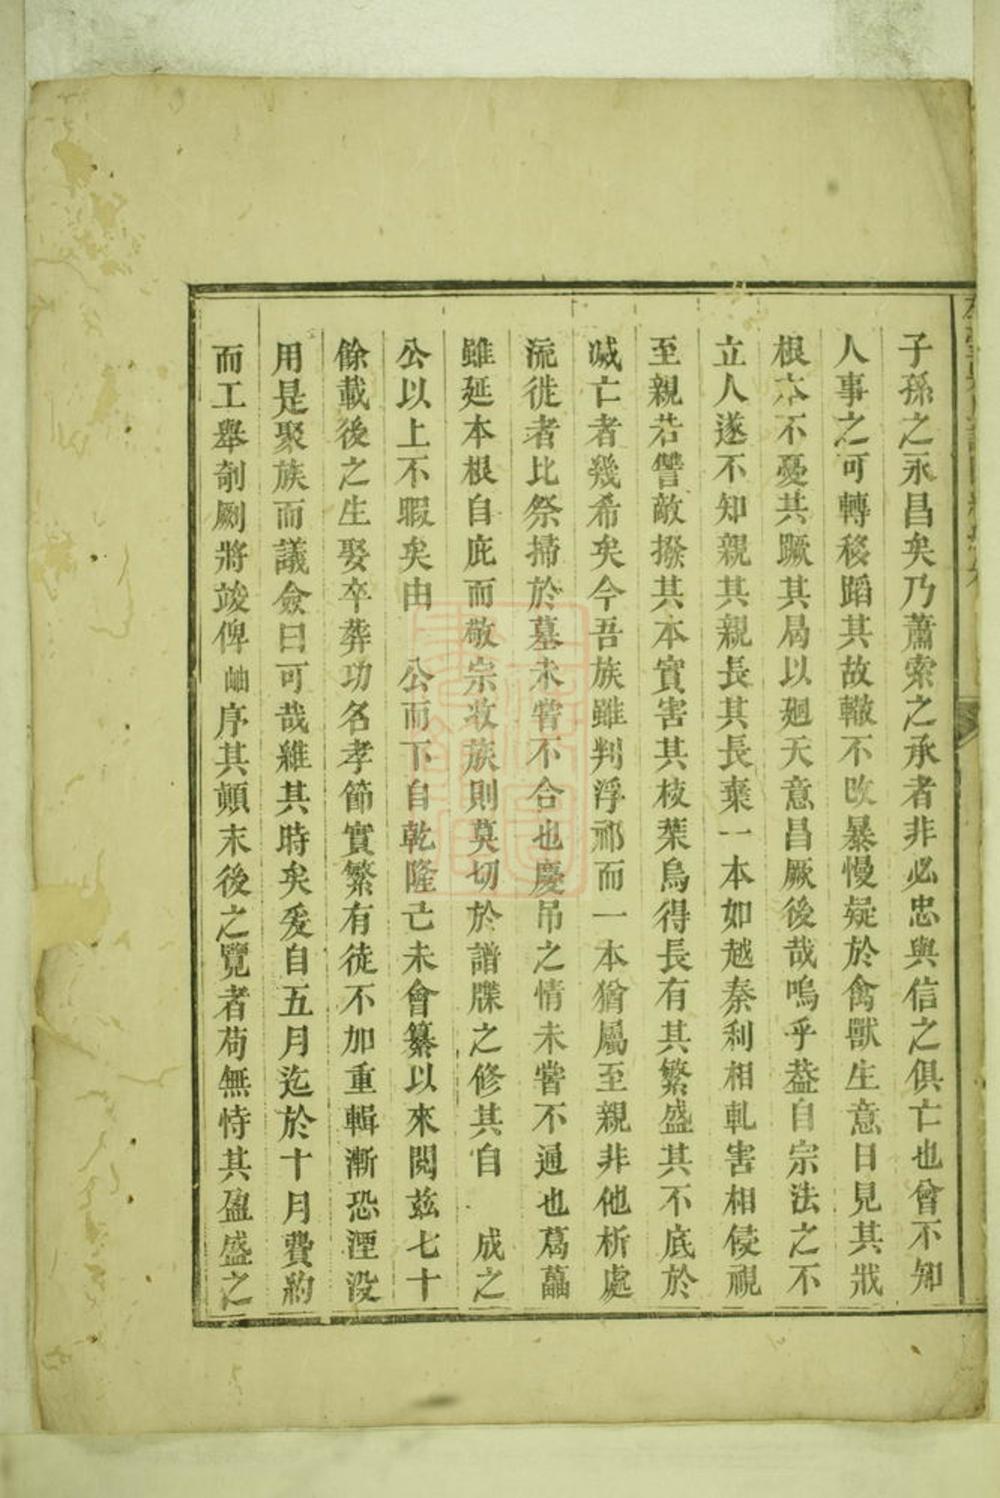 子孫之永昌矣乃蕭索之承者非必忠與信之俱亡也曾不知
人事之可轉移蹈其故轍不改暴慢疑於禽獸生意日見其戕
根本不憂其蹶其曷以廻天意昌厥後哉嗚乎葢自宗法之不
立人遂不知親其親長其長棄一本如越秦利相軋害相侵視
至親若讐敵撥其本實害其枝葉烏得長有其繁盛其不底於
滅亡者幾希矣今吾族雖判浮祁而一本猶屬至親非他析處
流徙者比祭掃於墓未嘗不合也慶吊之情未嘗不通也葛藟
雖延本根自庇而敬宗收族則莫切於譜牒之修其自 成之
公以上不暇矣由 公而下自乾隆己未會纂以來閱茲七十
餘載後之生娶卒葬功名孝節實繁有徒不加重輯漸恐湮没
用是聚族而議僉曰可哉維其時矣爰自五月迄於十月費約
而工舉剞劂將竣俾 岫序其顛末後之覽者苟無恃其盈盛之